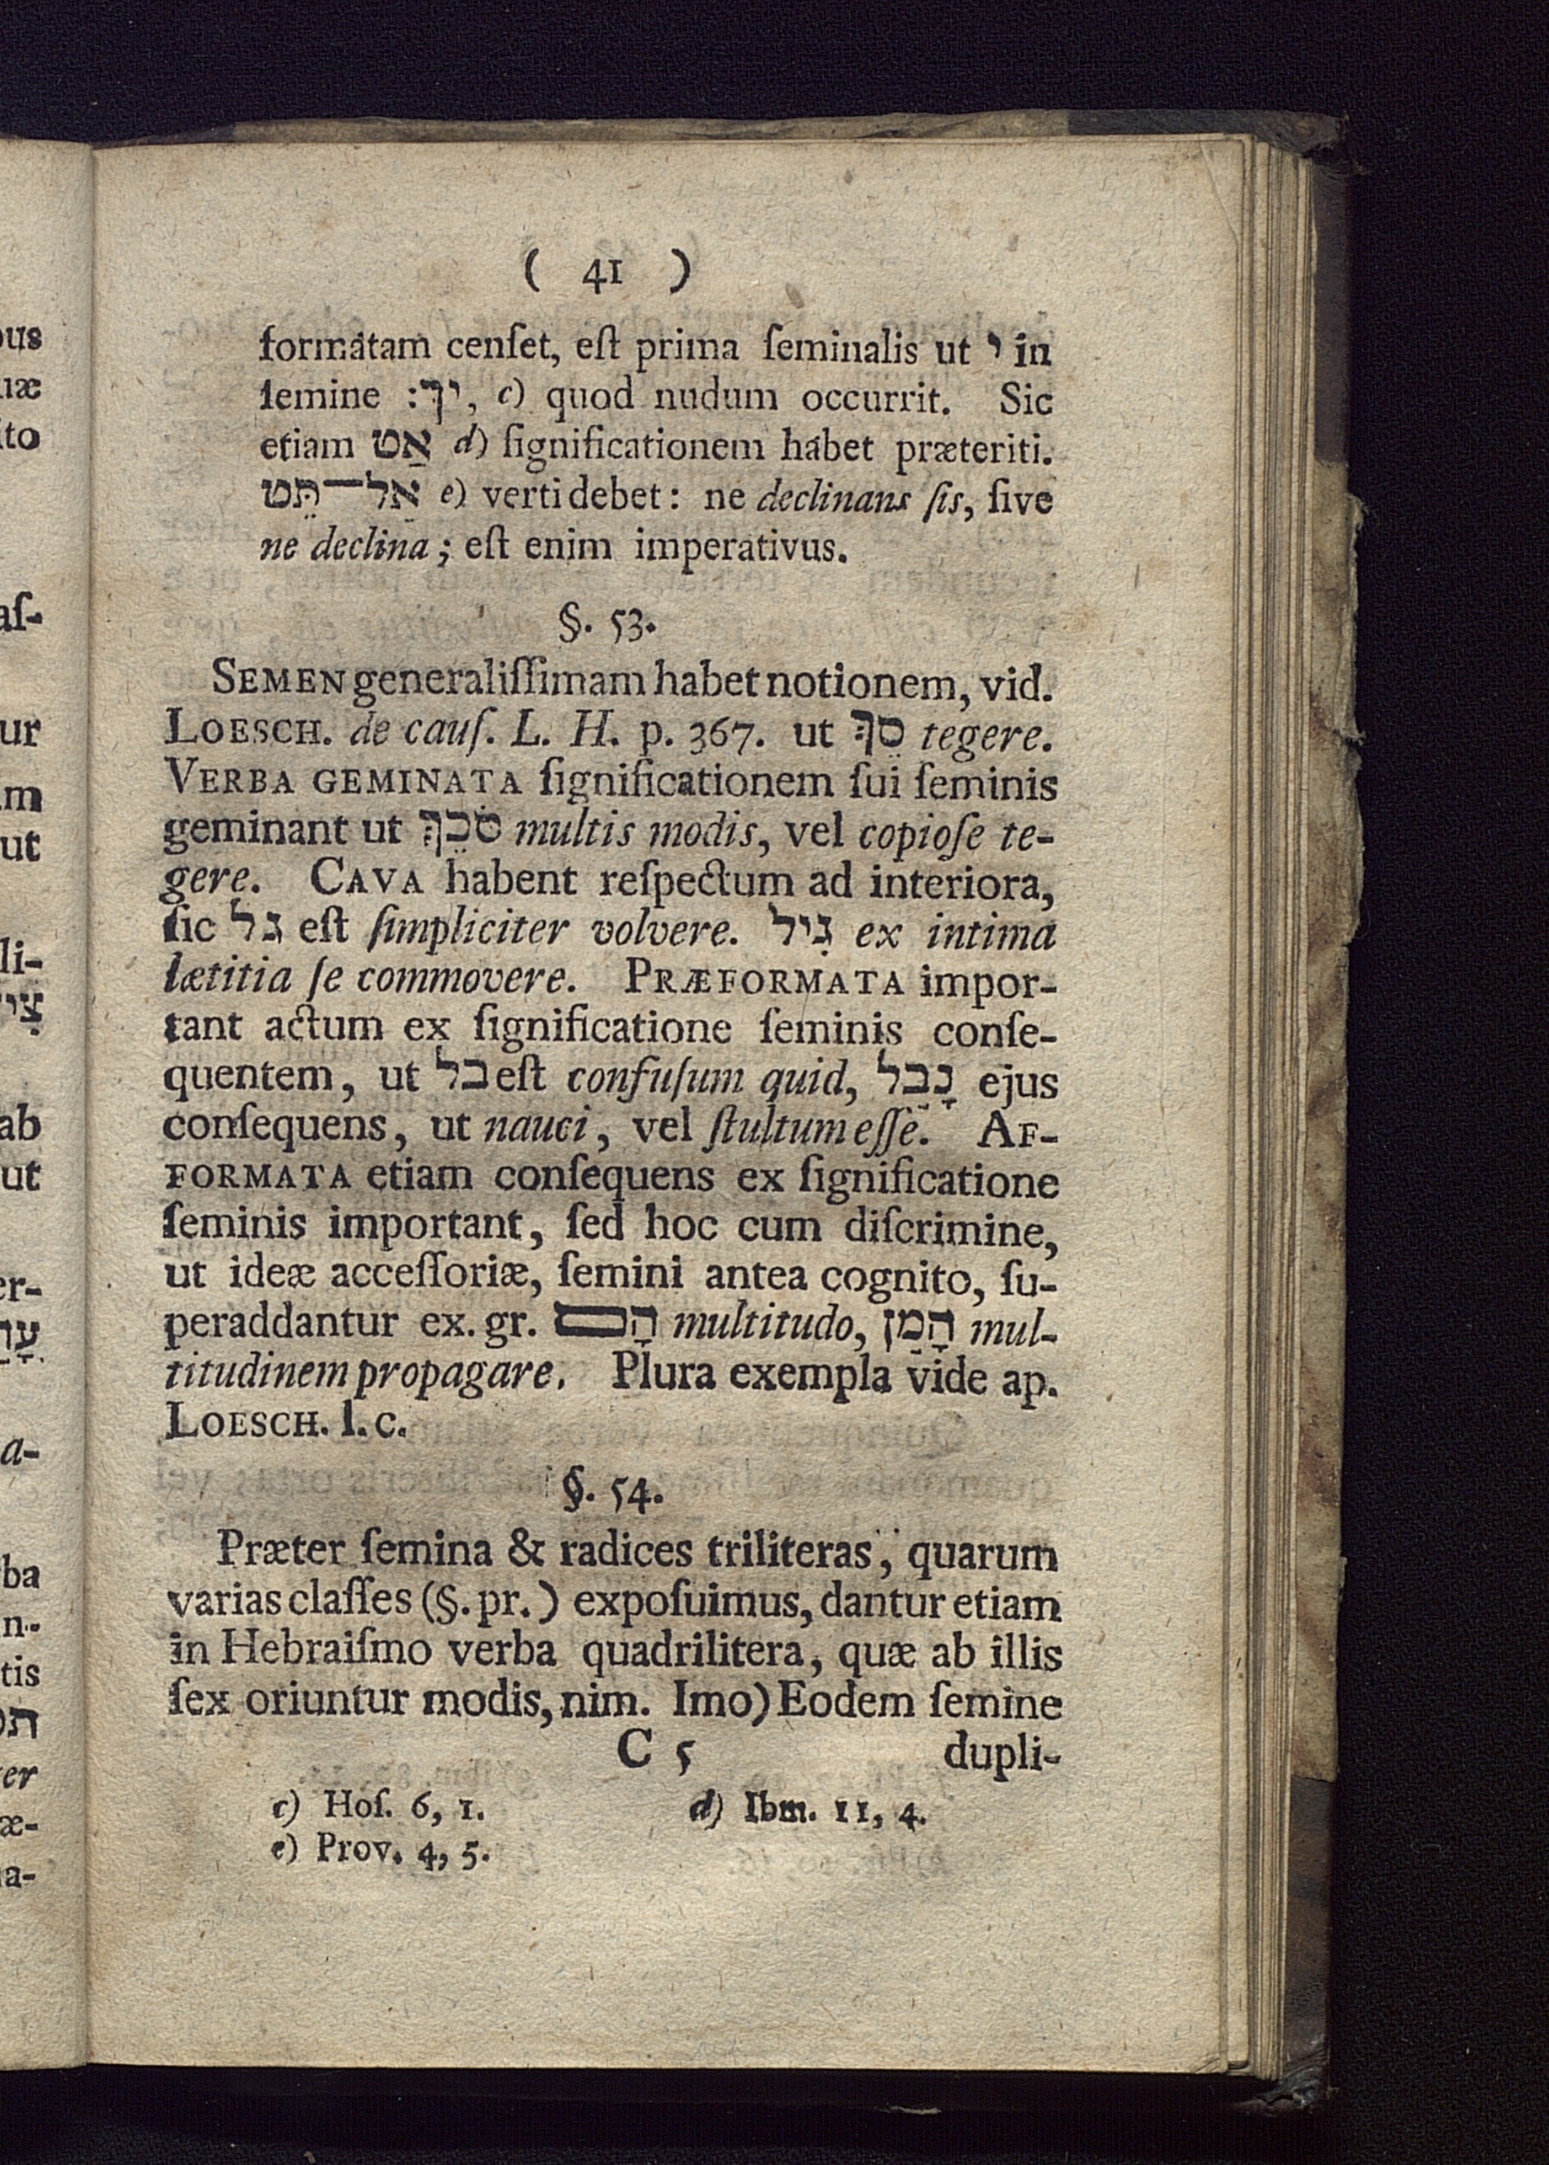 ( 41 )
formatam cenſet, eſt prima ſeminalis ut י in
ſemine יךְ:, c) quod nudum occurrit. Sic
etiam אַט d) ſignificationem habet præteriti.
אַל־תֵּט e) verti debet: ne declinans ſis, ſive
ne declina; eſt enim imperativus.
§. 53.
SEMEN generaliſſimam habet notionem, vid.
LOESCH. de cauſ. L. H. p. 367. ut סךְ tegere.
VERBA GEMINATA ſignificationem ſui ſeminis
geminant ut סׂכֵךְ multis modis, vel copioſe te-
gere. CAVA habent reſpectum ad interiora,
ſic גל eſt ſimpliciter volvere. גִיל ex intima
lætitia ſe commovere. PRÆFORMATA impor-
tant actum ex ſignificatione ſeminis conſe-
quentem, ut בל eſt confuſum quid, נָבֵל ejus
conſequens, ut nauci, vel ſtultum eſſe. AF-
FORMATA etiam conſequens ex ſignificatione
ſeminis important, ſed hoc cum diſcrimine,
ut ideæ acceſſoriæ, ſemini antea cognito, ſu-
peraddantur ex. gr. הָם multitudo, הָמַן mul-
titudinem propagare. Plura exempla vide ap.
LOESCH. l. c.
§. 54.
Præter ſemina & radices triliteras, quarum
varias claſſes (§. pr.) expoſuimus, dantur etiam
in Hebraiſmo verba quadrilitera, quæ ab illis
ſex oriuntur modis, nim. Imo) Eodem ſemine
C 5 dupli-
c) Hoſ. 6, 1. d) Ibm. 11, 4.
e) Prov. 4, 5.